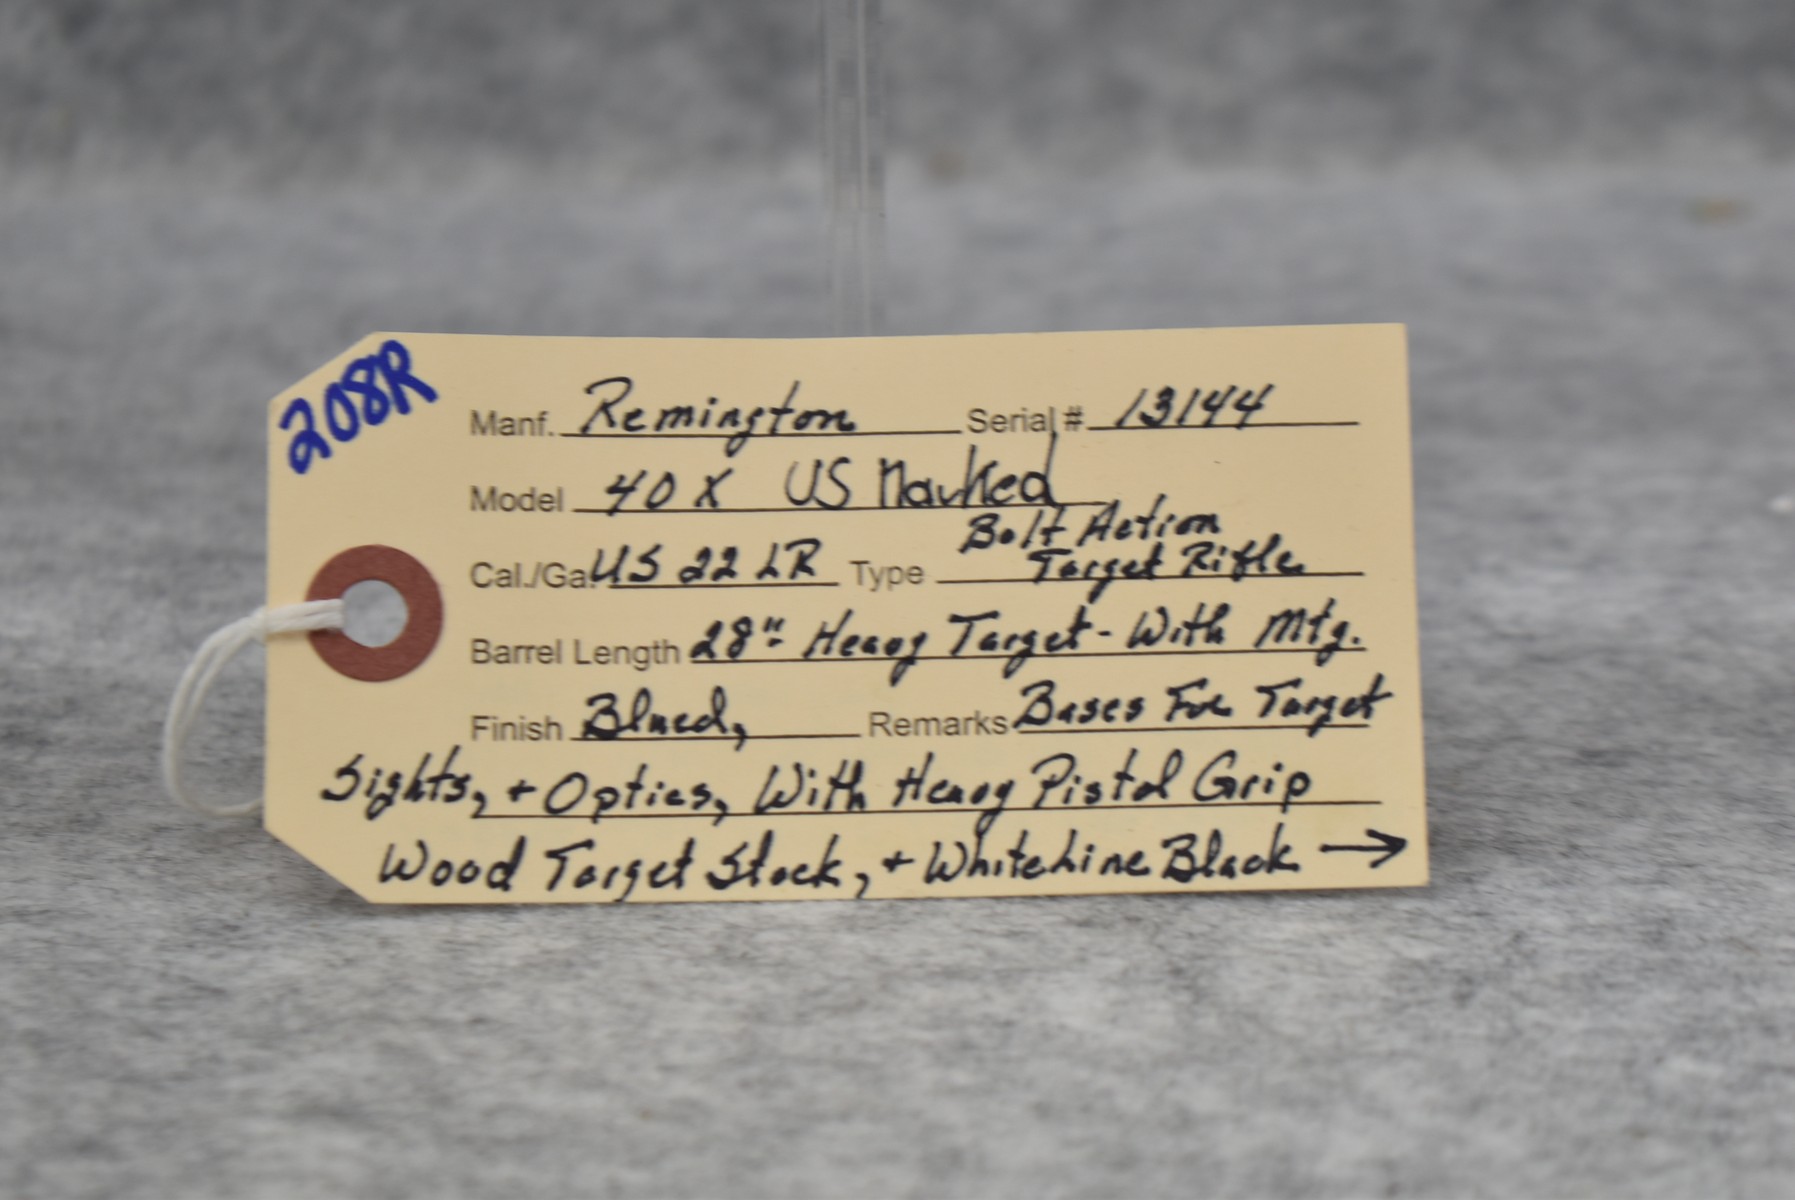 208R
Manf. Remington Serial # 13144
Model 40 X US Marked
Cal./Ga. US 22 LR Type Bolt Action
Target Rifle
Barrel Length 28" Heavy Target - With Mtg.
Finish Blued, Remarks Bases For Target
Sights, + Optics, With Heavy Pistol Grip
Wood Target Stock, + Whiteline Black →